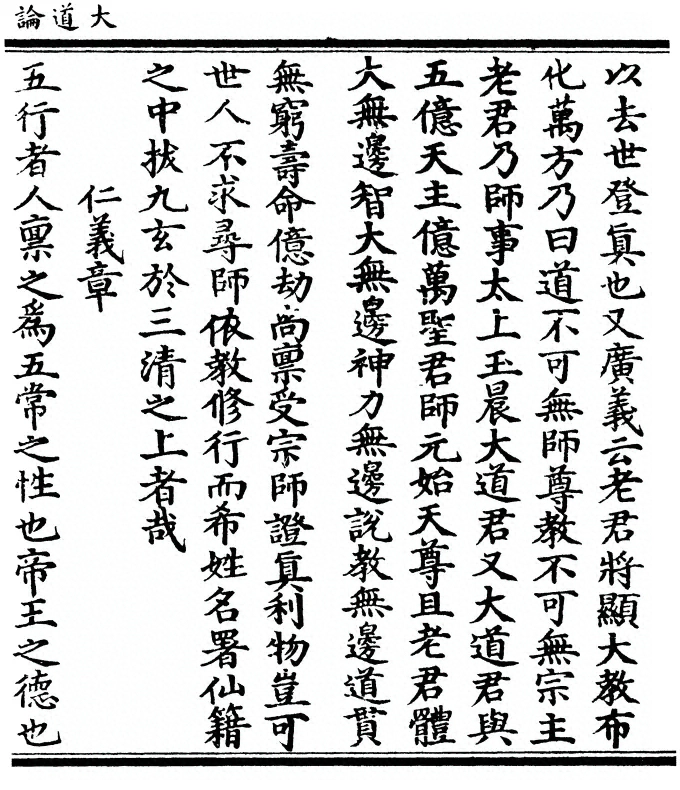 大道論
以去世登眞也又廣義云老君將顯大教布
化萬方乃曰道不可無師尊教不可無宗主
老君乃師事太上玉晨大道君又大道君與
五億天主億萬聖君師元始天尊且老君體
大無邊智大無邊神力無邊說教無邊道貫
無窮壽命億劫尚稟受宗師證眞利物豈可
世人不求尋師依教修行而希姓名署仙籍
之中拔九玄於三清之上者哉
仁義章
五行者人稟之爲五常之性也帝王之德也